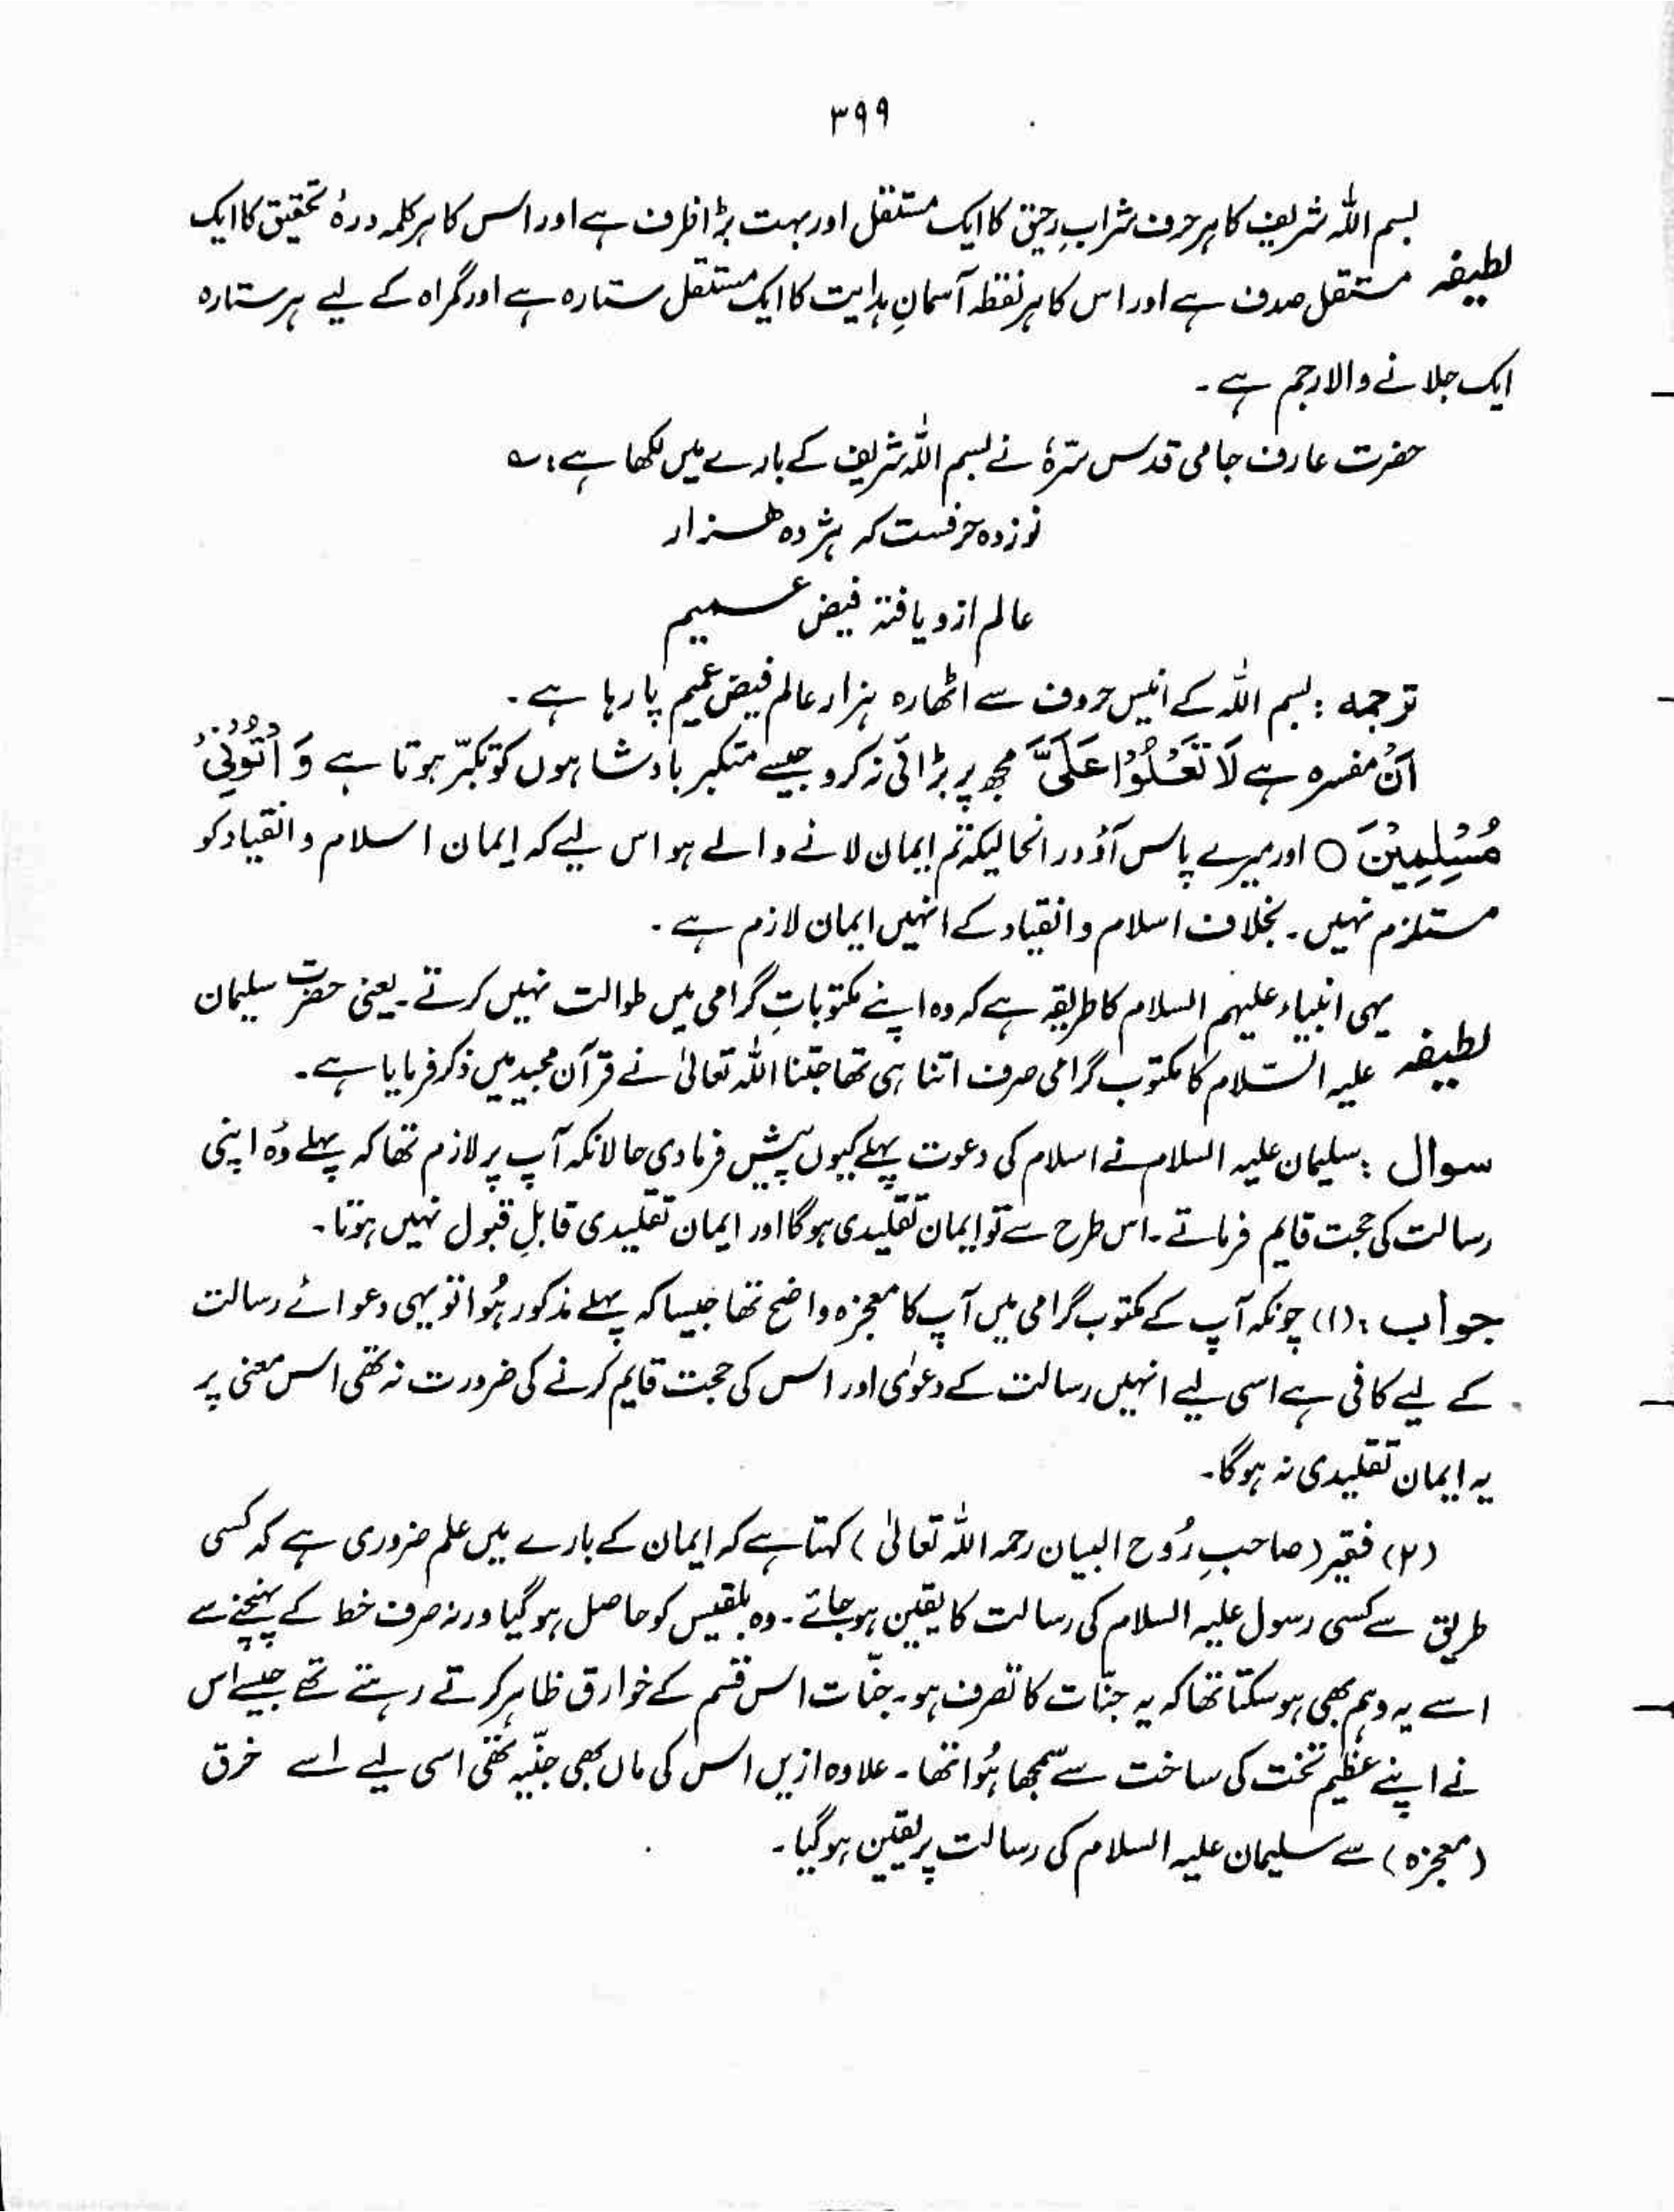 ۳۹۹
بسم اللہ شریف کا ہر حرف شرابِ رحیق کا ایک مستقل اور بہت بڑا ظرف ہے اور اس کا ہر کلمہ درۂ تحقیق کا ایک
لطیفہ مستقل صدف ہے اور اس کا ہر نقطہ آسمانِ ہدایت کا ایک مستقل ستارہ ہے اور گمراہ کے لیے ہر ستارہ
ایک جلانے والا رجم ہے۔
حضرت عارف جامی قدس سرّہٗ نے بسم اللہ شریف کے بارے میں لکھا ہے : ؎
نوزدہ حرفست کہ ہژدہ ہزار
عالم ازو یافتہ فیض عمیم
ترجمہ : بسم اللہ کے انیس حروف سے اٹھارہ ہزار عالم فیض عمیم پا رہا ہے۔
اَنْ مفسرہ ہے لَا تَعْلُوْا عَلَیَّ مجھ پر بڑائی نہ کرو جیسے متکبر بادشاہوں کو تکبّر ہوتا ہے وَ اْتُوْنِیْ
مُسْلِمِیْنَ ○ اور میرے پاس آؤ درانحالیکہ تم ایمان لانے والے ہو اس لیے کہ ایمان اسلام و انقیاد کو
مستلزم نہیں۔ بخلاف اسلام و انقیاد کے انہیں ایمان لازم ہے۔
یہی انبیاء علیہم السلام کا طریقہ ہے کہ وہ اپنے مکتوباتِ گرامی میں طوالت نہیں کرتے۔ یعنی حضرت سلیمان
لطیفہ علیہ السّلام کا مکتوب گرامی صرف اتنا ہی تھا جتنا اللہ تعالیٰ نے قرآن مجید میں ذکر فرمایا ہے۔
سوال : سلیمان علیہ السلام نے اسلام کی دعوت پہلے کیوں پیش فرما دی حالانکہ آپ پر لازم تھا کہ پہلے وُہ اپنی
رسالت کی حجت قایم فرماتے۔ اس طرح سے تو ایمان تقلیدی ہوگا اور ایمان تقلیدی قابلِ قبول نہیں ہوتا۔
جواب : (۱) چونکہ آپ کے مکتوب گرامی میں آپ کا معجزہ واضح تھا جیسا کہ پہلے مذکور ہُوا تو یہی دعوائے رسالت
کے لیے کافی ہے اسی لیے انہیں رسالت کے دعوٰی اور اس کی حجت قایم کرنے کی ضرورت نہ تھی اس معنی پر
یہ ایمان تقلیدی نہ ہوگا۔
(۲) فقیر (صاحبِ رُوح البیان رحمہ اللہ تعالیٰ) کہتا ہے کہ ایمان کے بارے میں علم ضروری ہے کہ کسی
طریق سے کسی رسول علیہ السلام کی رسالت کا یقین ہو جائے۔ وہ بلقیس کو حاصل ہو گیا ورنہ صرف خط کے پہنچنے سے
اسے یہ وہم بھی ہو سکتا تھا کہ یہ جنّات کا تصرف ہو۔ جنّات اس قسم کے خوارق ظاہر کرتے رہتے تھے جیسے اس
نے اپنے عظیم تخت کی ساخت سے سمجھا ہُوا تھا۔ علاوہ ازیں اس کی ماں بھی جنّیہ تھی اسی لیے اسے خرق
(معجزہ) سے سلیمان علیہ السلام کی رسالت پر یقین ہو گیا۔